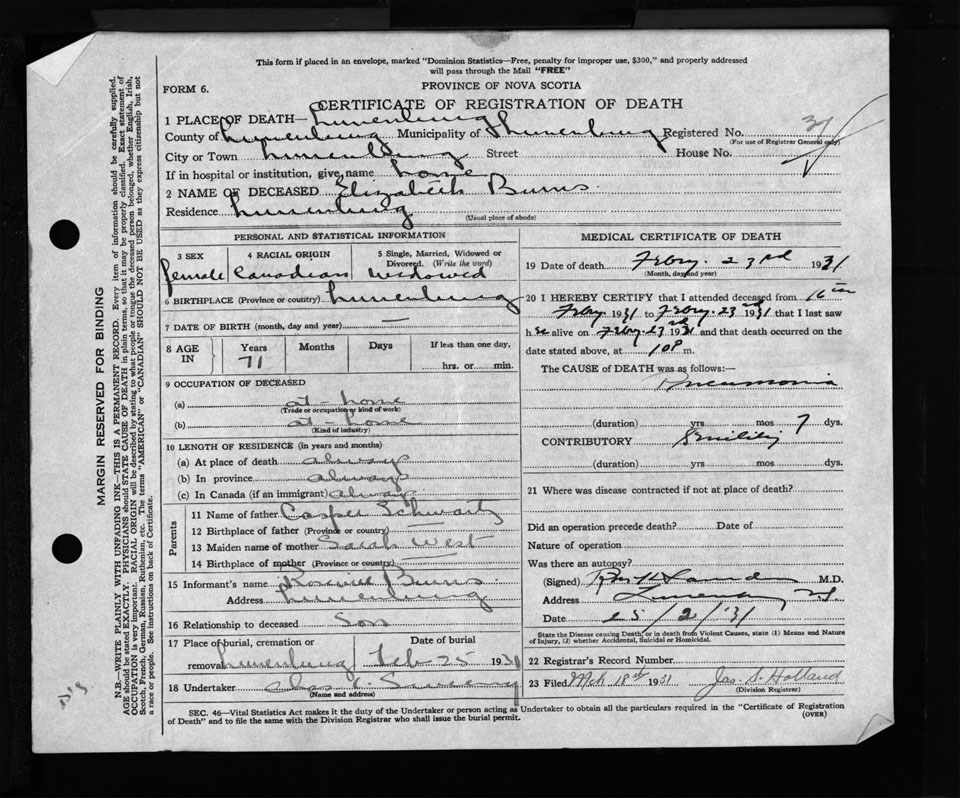 This form if placed in an envelope, marked "Dominion Statistics—Free, penalty for improper use, $300," and properly addressed
will pass through the Mail "FREE"
FORM 6.
PROVINCE OF NOVA SCOTIA
CERTIFICATE OF REGISTRATION OF DEATH
1 PLACE OF DEATH— Lunenburg
County of Lunenburg Municipality of Lunenburg Registered No. 31
(For use of Registrar General only)
City or Town Lunenburg Street House No.
If in hospital or institution, give name home
2 NAME OF DECEASED Elizabeth Burns
Residence Lunenburg
(Usual place of abode)
PERSONAL AND STATISTICAL INFORMATION
3 SEX 4 RACIAL ORIGIN 5 Single, Married, Widowed or
Divorced. (Write the word)
female Canadian widowed
6 BIRTHPLACE (Province or country) Lunenburg
7 DATE OF BIRTH (month, day and year) —
8 AGE IN Years Months Days If less than one day,
71 hrs. or min.
9 OCCUPATION OF DECEASED
(a) at-home
(Trade or occupation or kind of work)
(b) at-home
(Kind of industry)
10 LENGTH OF RESIDENCE (in years and months)
(a) At place of death always
(b) In province always
(c) In Canada (if an immigrant) always
Parents
11 Name of father Casper Schwartz
12 Birthplace of father (Province or country)
13 Maiden name of mother Sarah West
14 Birthplace of mother (Province or country)
15 Informant's name Burns
Address Lunenburg
16 Relationship to deceased Son
17 Place of burial, cremation or Date of burial
removal Lunenburg Feb 25 1931
18 Undertaker Chas Sweeny
(Name and address)
MEDICAL CERTIFICATE OF DEATH
19 Date of death Feby. 23rd 1931
(Month, day and year)
20 I HEREBY CERTIFY that I attended deceased from 16
Feby. 1931 to Feby. 23rd 1931 that I last saw
h alive on Feby. 23rd 1931 and that death occurred on
date stated above, at 10P m.
The CAUSE of DEATH was as follows:—
Pneumonia
(duration) yrs mos 7 dys.
CONTRIBUTORY Senility
(duration) yrs mos dys.
21 Where was disease contracted if not at place of death?
Did an operation precede death? Date of
Nature of operation
Was there an autopsy?
(Signed) M.D.
Address Lunenburg NS
Date 25/2/31
State the Disease causing Death, or in death from Violent Causes, state (1) Means and Nature
of Injury, (2) whether Accidental, Suicidal or Homicidal.
22 Registrar's Record Number
23 Filed Mch 18th 1931 Jas. S. Holland
(Division Registrar)
SEC. 46—Vital Statistics Act makes it the duty of the Undertaker or person acting as Undertaker to obtain all the particulars required in the "Certificate of Registration
of Death" and to file the same with the Division Registrar who shall issue the burial permit.
(OVER)
MARGIN RESERVED FOR BINDING
N.B.—WRITE PLAINLY WITH UNFADING INK—THIS IS A PERMANENT RECORD. Every item of information should be carefully supplied.
AGE should be stated EXACTLY. PHYSICIANS should STATE CAUSE OF DEATH in plain terms, so that it may be properly classified. Exact statement of
OCCUPATION is very important. RACIAL ORIGIN will be described by stating to what people or tongue the deceased person belonged, whether English, Irish,
Scotch, French, German, Russian, Ruthenian, etc. The terms "AMERICAN" or "CANADIAN" SHOULD NOT BE USED as they express citizenship but not
a race or people. See instructions on back of Certificate.